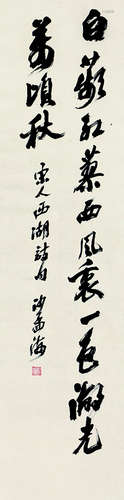 白蘋红蓼西风里一色湖光
万顷秋
宋人西湖诗句 沙孟海